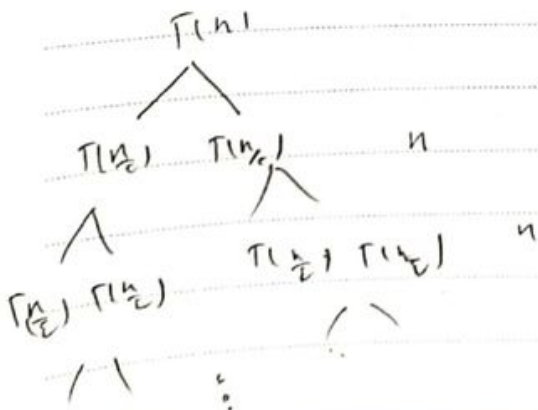 T(n)
T(n/2) T(n/2) n
T(n/2) T(n/2) n
T(n/2) T(n/2)